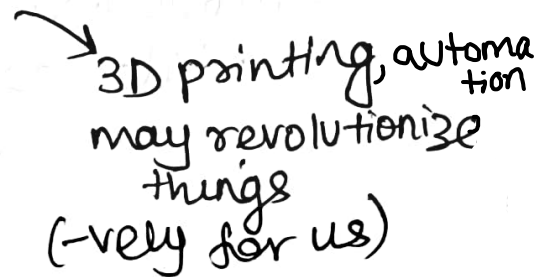 3D printing, automa
tion
may revolutionize
things
(-vely for us)